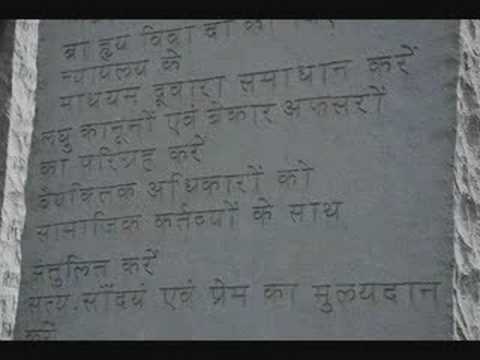 बाह्य विवादों को
न्यायलय के
माधयन द्वारा समाधान करें
लघु कानूनों एवं बेकार अफसरों
का परिग्रह करें
वैयक्तिक अधिकारों को
सामाजिक कर्तव्यों के साथ
सतुलित करें
सत्य.सौंदयं एवं प्रेम का मुल्यदान
करें